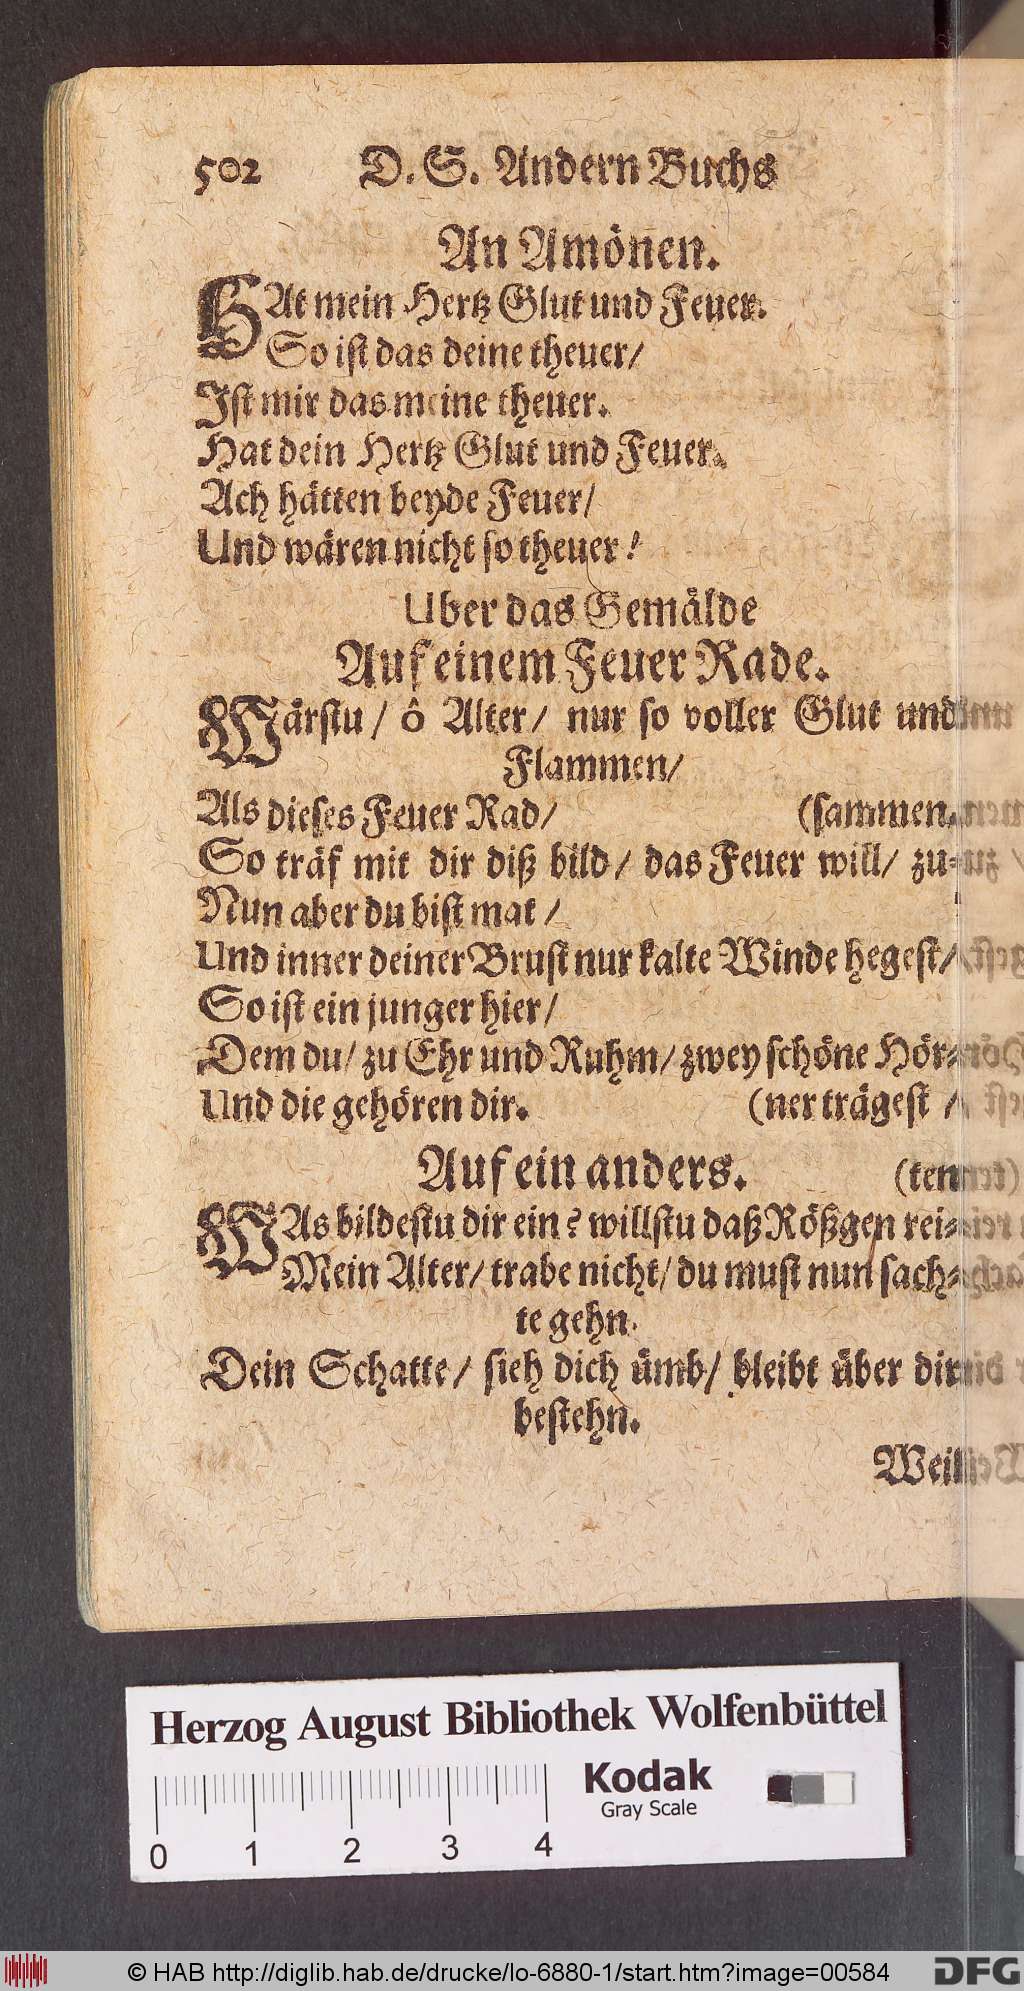 502 D. S. Andern Buchs
An Amönen.
HAt mein Hertz Glut und Feuer.
So ist das deine theuer/
Ist mir das meine theuer.
Hat dein Hertz Glut und Feuer.
Ach hätten beyde Feuer/
Und wären nicht so theuer!
Uber das Gemälde
Auf einem Feuer Rade.
Wärstu / ô Alter / nur so voller Glut und
Flammen/
Als dieses Feuer Rad/ (sammen.
So träf mit dir diß bild / das Feuer will / zu-
Nun aber du bist mat /
Und inner deiner Brust nur kalte Winde hegest/
So ist ein junger hier/
Dem du/ zu Ehr und Ruhm/ zwey schöne Hör-
Und die gehören dir. (ner trägest /
Auf ein anders. (ten
WAs bildestu dir ein? willstu daß Rößgen rei-
Mein Alter/ trabe nicht/ du must nun sach-
te gehn.
Dein Schatte/ sieh dich ümb/ bleibt über dir
bestehn.
Weil
Herzog August Bibliothek Wolfenbüttel
Kodak
Gray Scale
0 1 2 3 4
© HAB http://diglib.hab.de/drucke/lo-6880-1/start.htm?image=00584
DFG